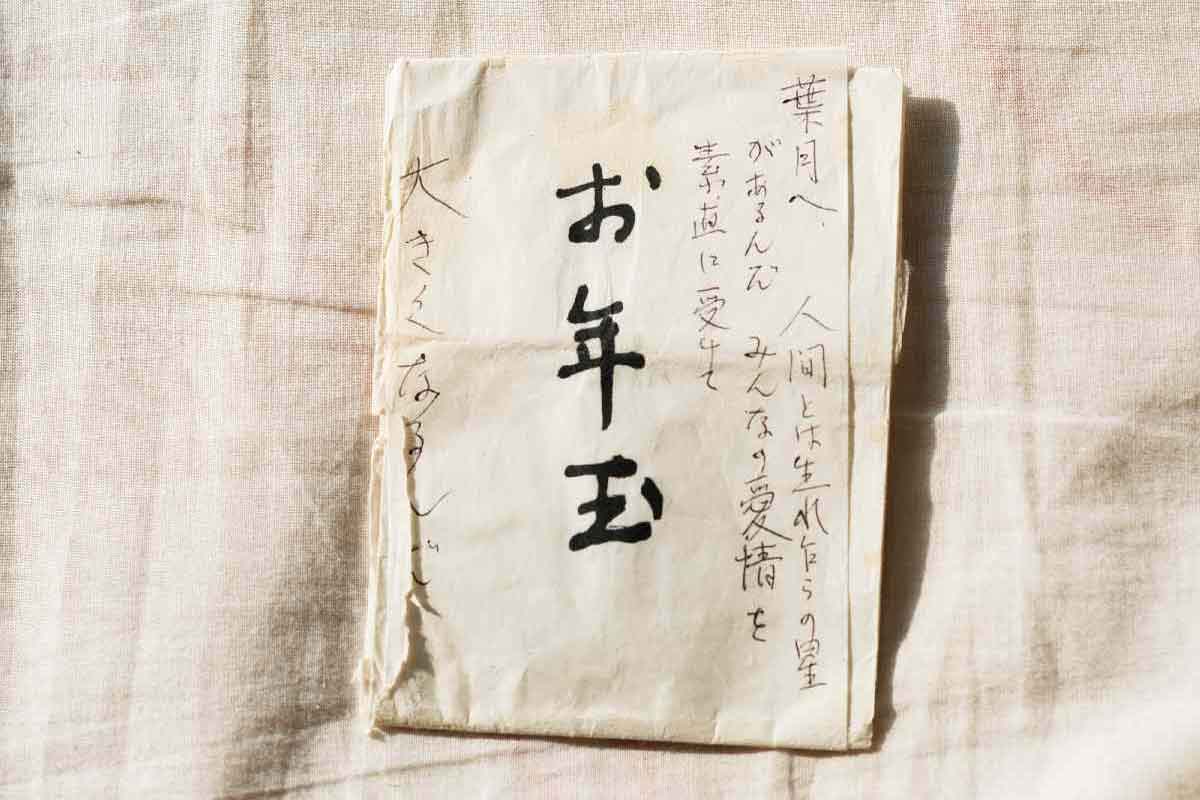 葉月へ、人間とは生れ乍らの星
があるんだ みんなの愛情を
素直に受けて
お年玉
大きくなるんだ